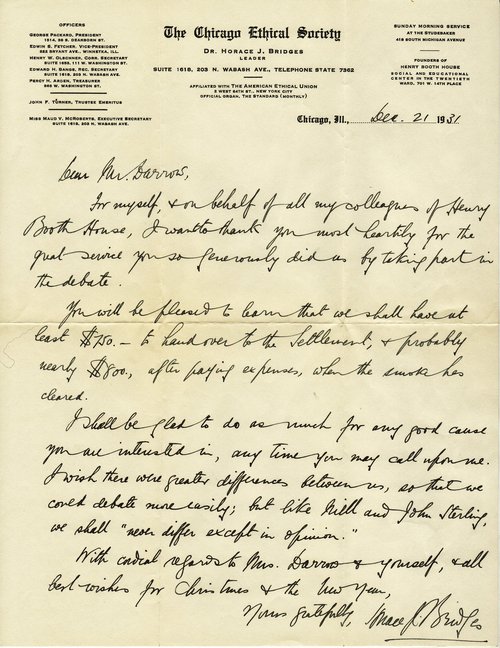 OFFICERS
GEORGE PACKARD, PRESIDENT
EDWIN S. FETCHER, VICE-PRESIDENT
582 BRYANT AVE., WINNETKA, ILL.
HENRY W. OLSCHNER, COR. SECRETARY
SUITE 1655, 111 W. WASHINGTON ST.
EDWARD H. BANGS, REC. SECRETARY
SUITE 1618, 203 N. WABASH AVE.
PERCY H. ARDEN, TREASURER
JOHN F. TURNER, TRUSTEE EMERITUS
MISS MAUD V. MCROBERTS, EXECUTIVE SECRETARY
SUITE 1618, 203 N. WABASH AVE.
The Chicago Ethical Society
DR. HORACE J. BRIDGES
LEADER
SUITE 1618, 203 N. WABASH AVE., TELEPHONE STATE 7362
AFFILIATED WITH THE AMERICAN ETHICAL UNION
2 WEST 64TH ST., NEW YORK CITY
OFFICIAL ORGAN, THE STANDARD (MONTHLY)
SUNDAY MORNING SERVICE
AT THE STUDEBAKER
418 SOUTH MICHIGAN AVENUE
FOUNDERS OF
HENRY BOOTH HOUSE
SOCIAL AND EDUCATIONAL
CENTER IN THE TWENTIETH
WARD, 701 W. 14TH PLACE
Chicago, Ill., Dec. 21 1931
Dear Mr. Darrow,
For myself, & on behalf of all my colleagues of Henry
Booth House, I want to thank you most heartily for the
great service you so generously did us by taking part in
the debate.
You will be pleased to learn that we shall have at
least $750.— to hand over to the Settlement, & probably
nearly $800., after paying expenses, when the smoke has
cleared.
I shall be glad to do as much for any good cause
you are interested in, any time you may call upon me.
I wish there were greater differences between us, so that we
could debate more easily; but like Mill and John Sterling,
we shall "never differ except in opinion."
With cordial regards to Mrs. Darrow & yourself, & all
best wishes for Christmas & the New Year,
Yours gratefully, Horace J. Bridges